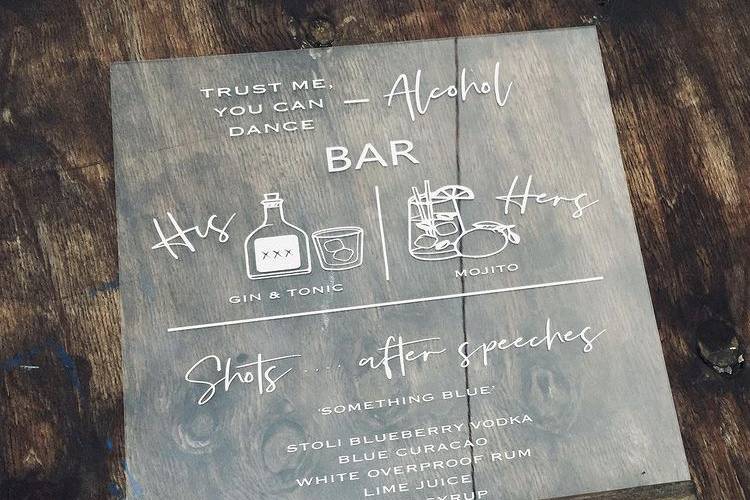 TRUST ME,
YOU CAN
DANCE
— Alcohol
BAR
His
XXX
GIN & TONIC
Hers
MOJITO
Shots .... after speeches
'SOMETHING BLUE'
STOLI BLUEBERRY VODKA
BLUE CURACAO
WHITE OVERPROOF RUM
LIME JUICE
SYRUP